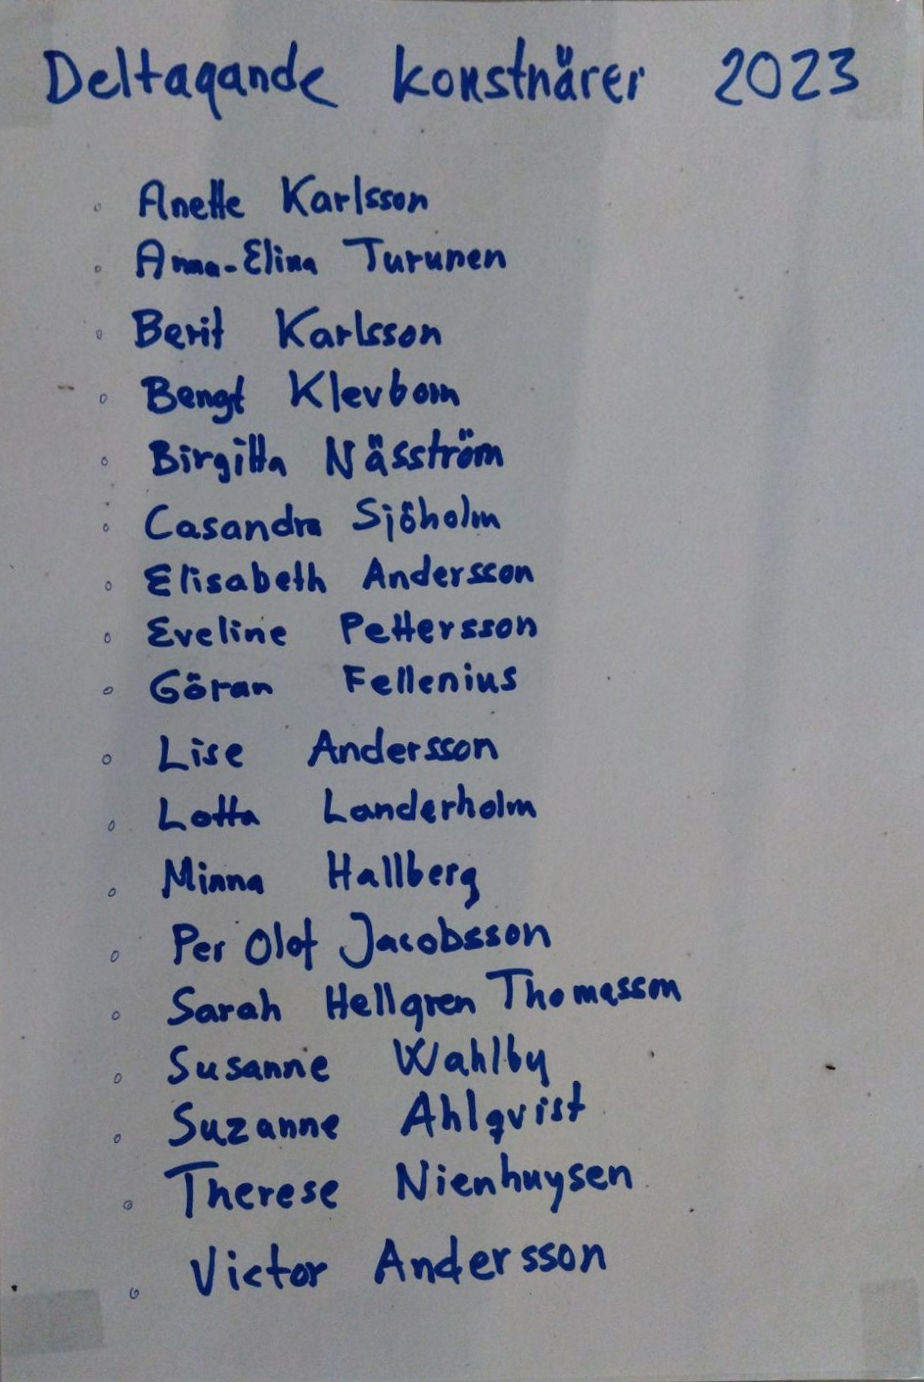 Deltagande konstnärer 2023
Anette Karlsson
Anna-Elina Turunen
Berit Karlsson
Bengt Klevbom
Birgitta Näsström
Casandra Sjöholm
Elisabeth Andersson
Eveline Pettersson
Göran Fellenius
Lise Andersson
Lotta Landerholm
Minna Hallberg
Per Olof Jacobsson
Sarah Hellgren Thomasson
Susanne Wahlby
Suzanne Ahlqvist
Therese Nienhuysen
Victor Andersson